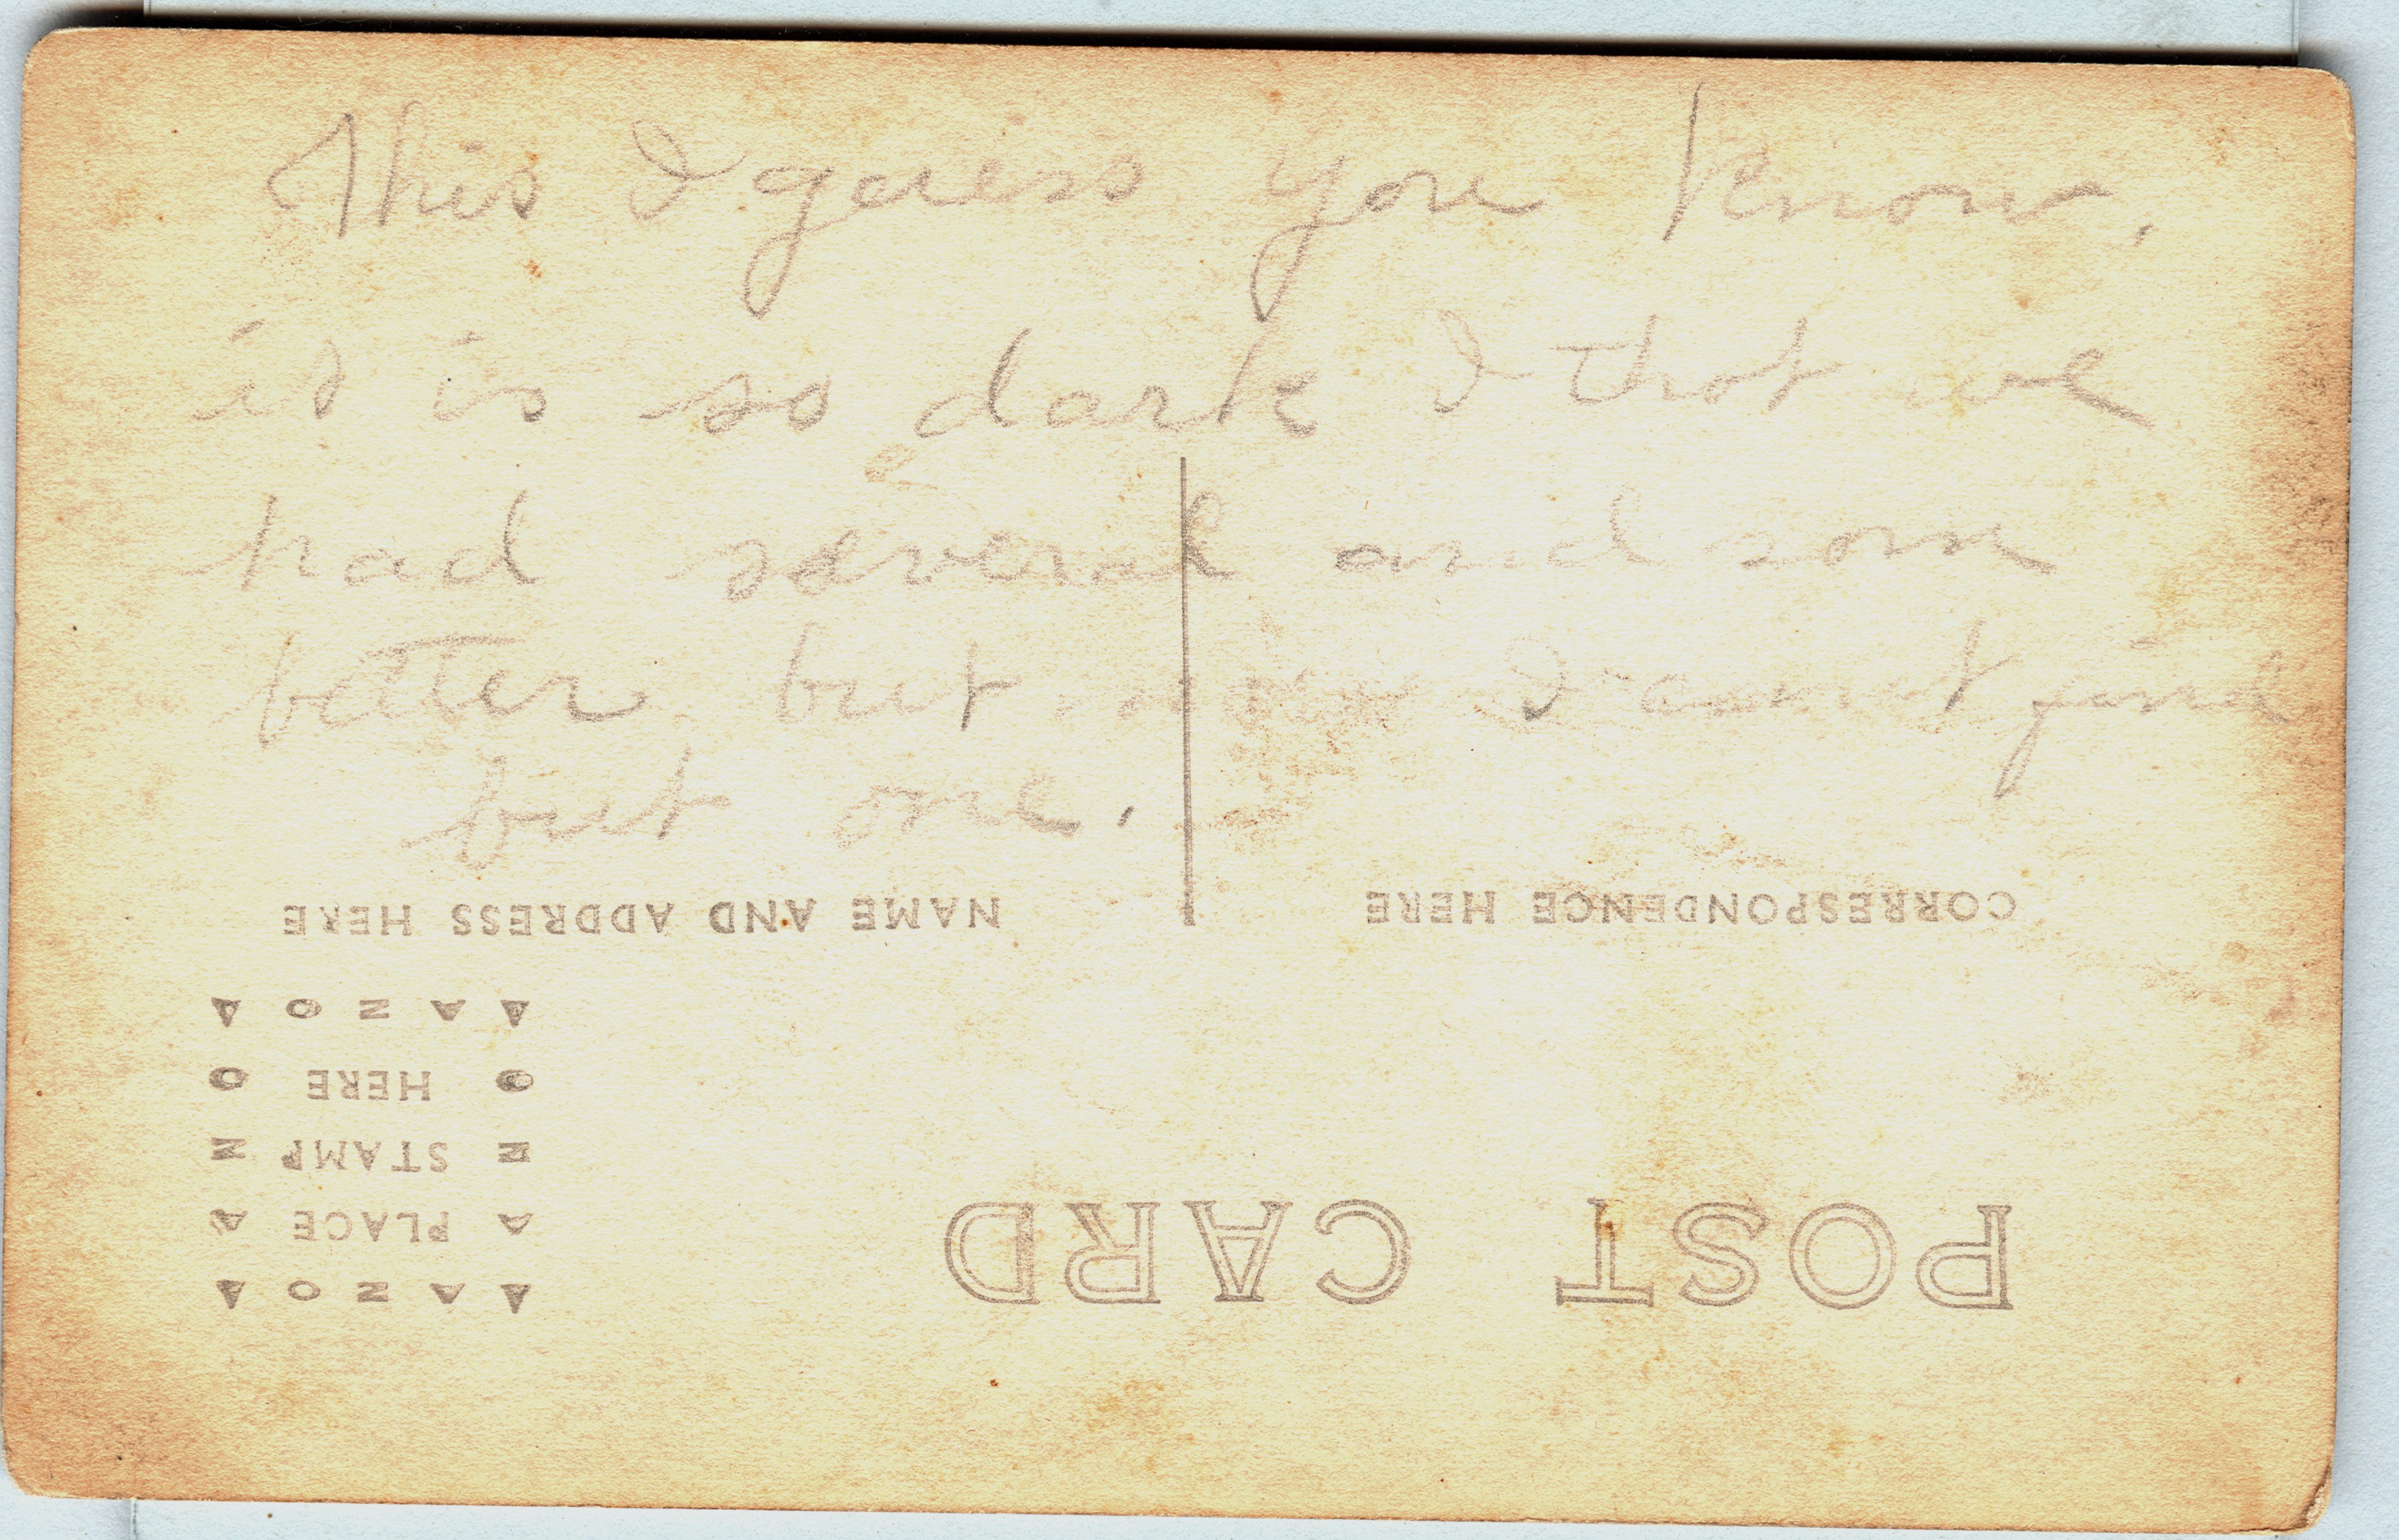 This I guess you know,
it is so dark I thot we
had several and some
better but now I can't find
but one.
NAME AND ADDRESS HERE
CORRESPONDENCE HERE
AZO
HERE
STAMP
PLACE
AZO
POST CARD